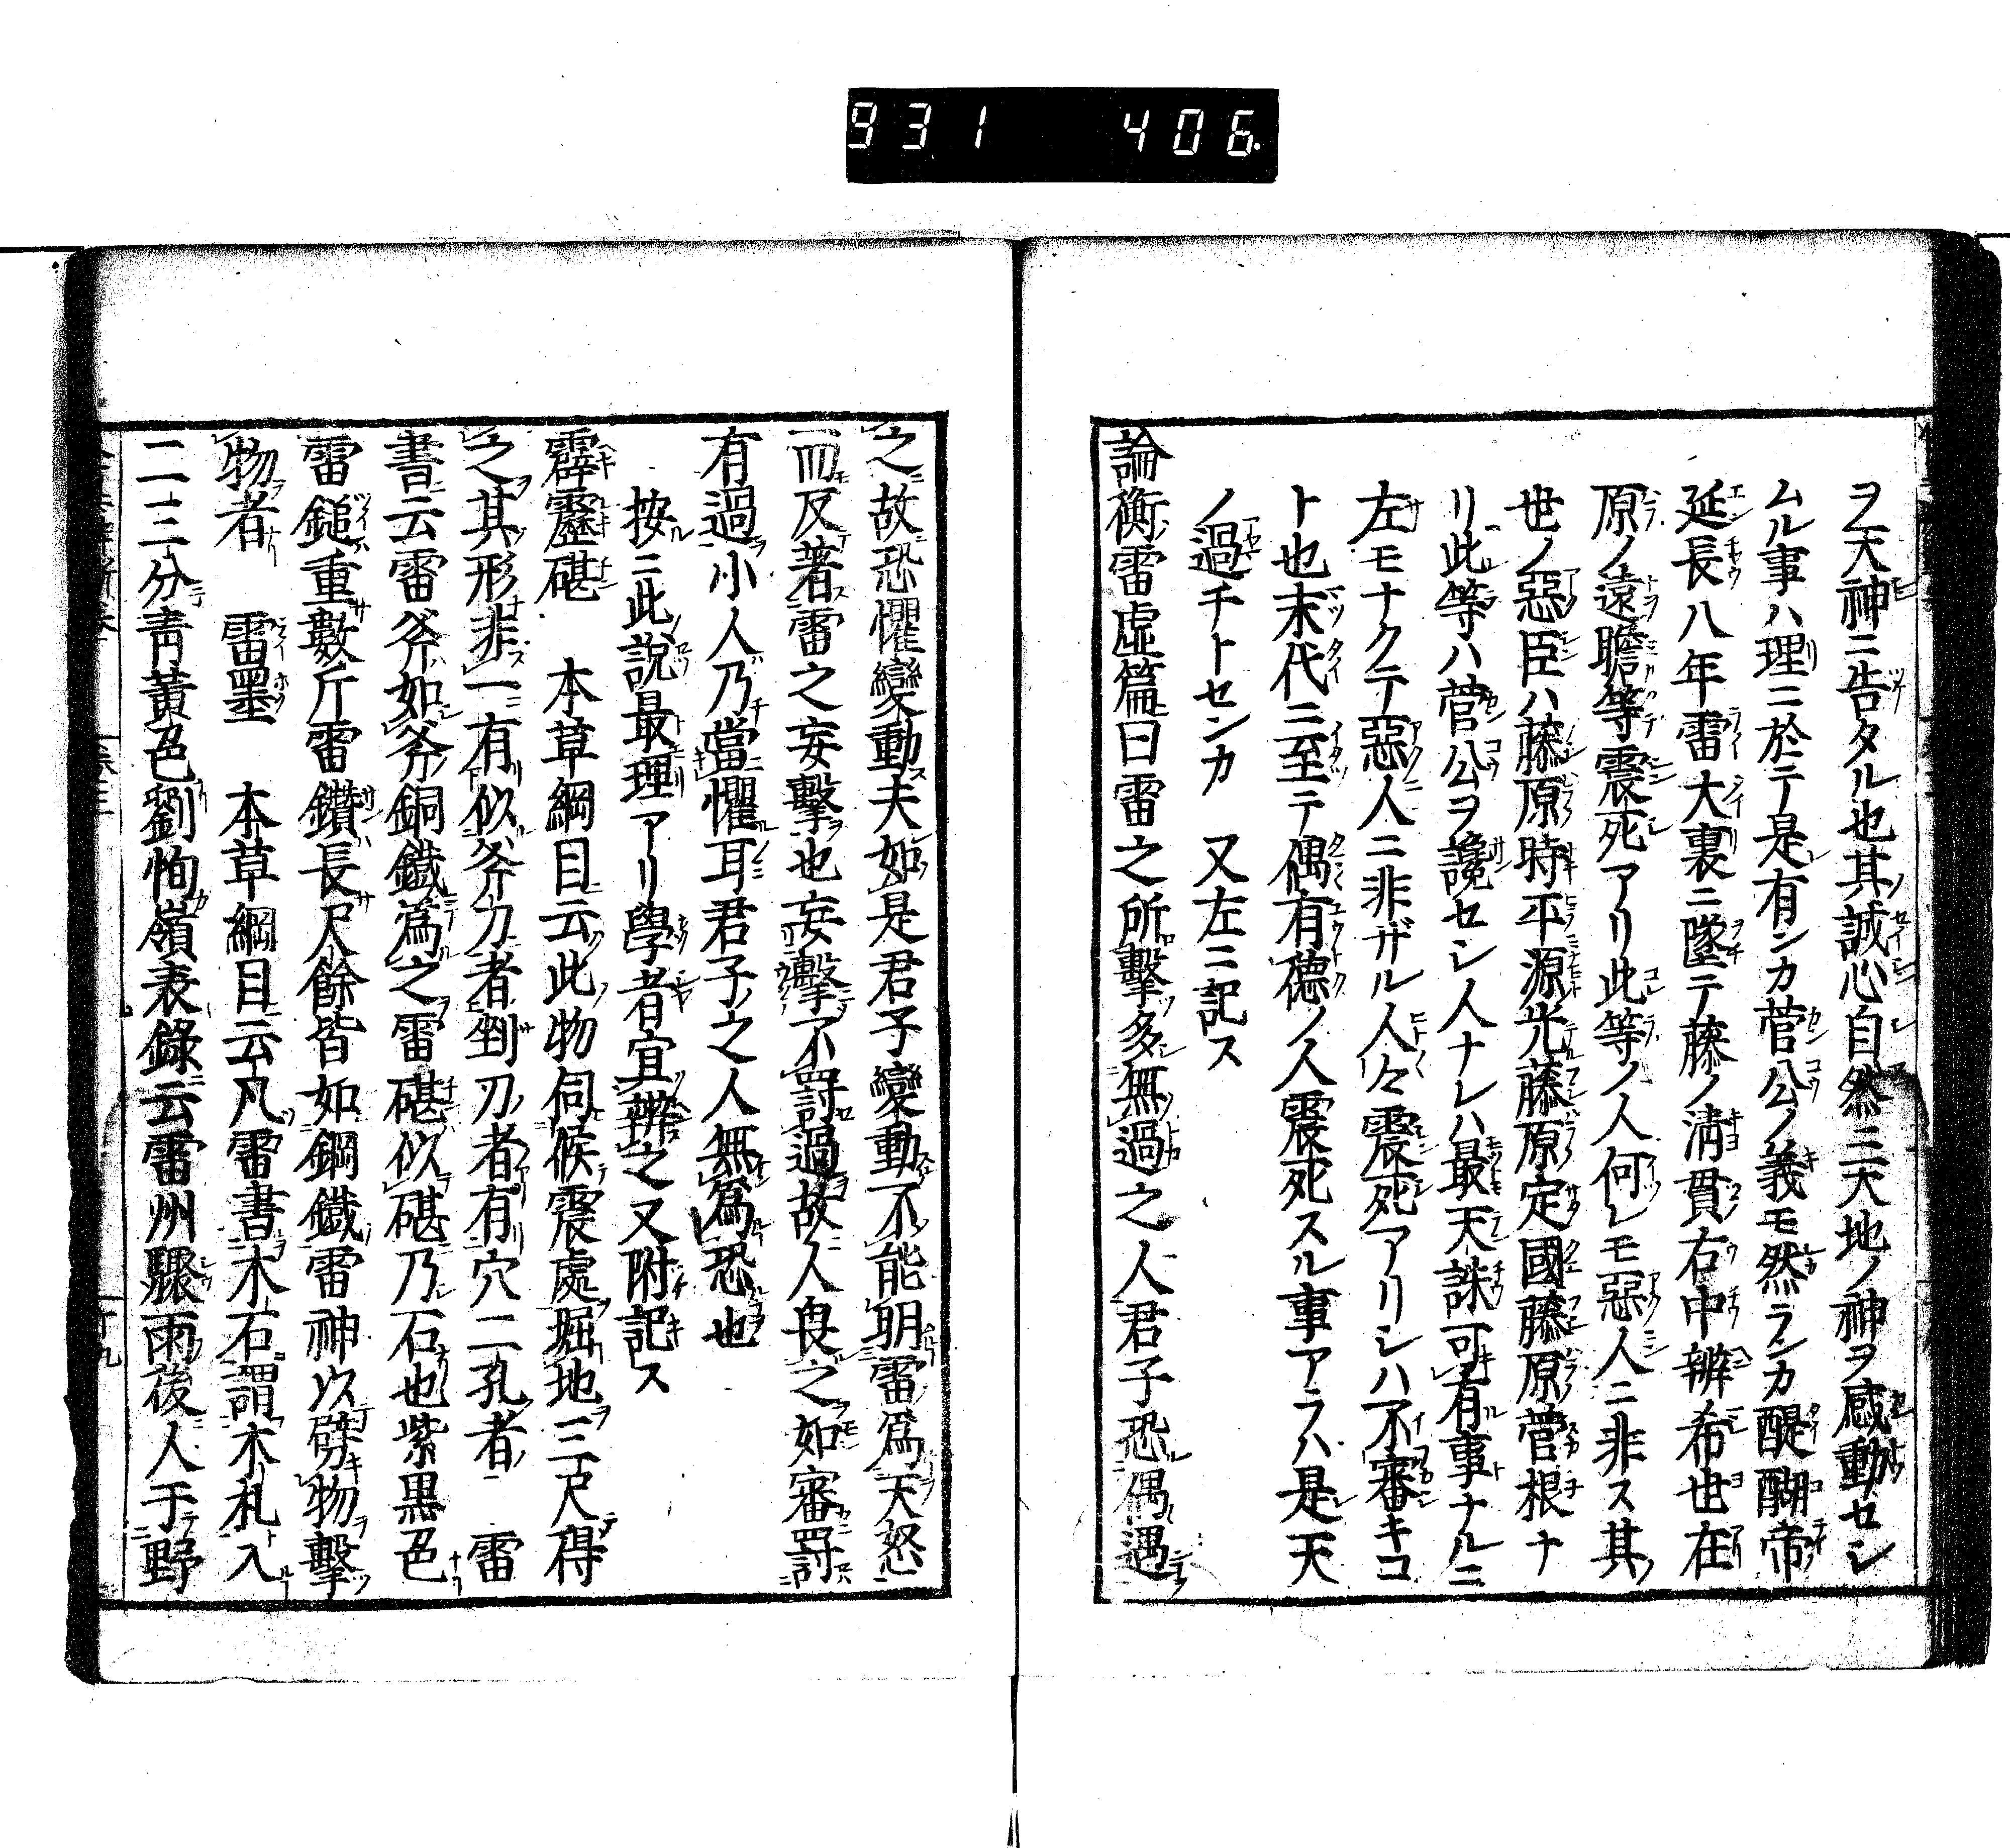 931 406
ヲ天神ニ告タル也其誠心自然ニ天地ノ神ヲ感動セシ
ムル事ハ理ニ於テ是有ンカ菅公ノ義モ然ランカ醍醐帝
延長八年雷大裏ニ墜テ藤ノ淸貫右中辨希世在
原ノ遠瞻等震死アリ此等ノ人何レモ惡人ニ非ス其
世ノ惡臣ハ藤原時平源光藤原定國藤原菅根ナ
リ此等ハ菅公ヲ讒セシ人ナレハ最天誅可有事ナルニ
左モナクテ惡人ニ非ザル人々震死アリシハ不審キコ
ト也末代ニ至テ偶有德ノ人震死スル事アラハ是天
ノ過チトセンカ 又左ニ記ス
論衡雷虛篇曰雷之所擊多無過之人君子恐偶遇
之故恐懼變動夫如是君子變動不能明雷爲天怒
而反著雷之妄擊也妄擊不罰過故人畏之如審罰
有過小人乃當懼耳君子之人無爲恐也
按ニ此說最理アリ學者宜辨之又附記ス
霹靂碪 本草綱目云此物伺候震處掘地三尺得
之其形非一有似斧刀者剉刃者有穴二孔者 雷
書云雷斧如斧銅鐵爲之雷碪似碪乃石也紫黑色
雷鎚重數斤雷鑽長尺餘皆如鋼鐵雷神以劈物擊
物者 雷墨 本草綱目云凡雷書木石謂木札入
二三分靑黃色劉恂嶺表錄云雷州驟雨後人于野